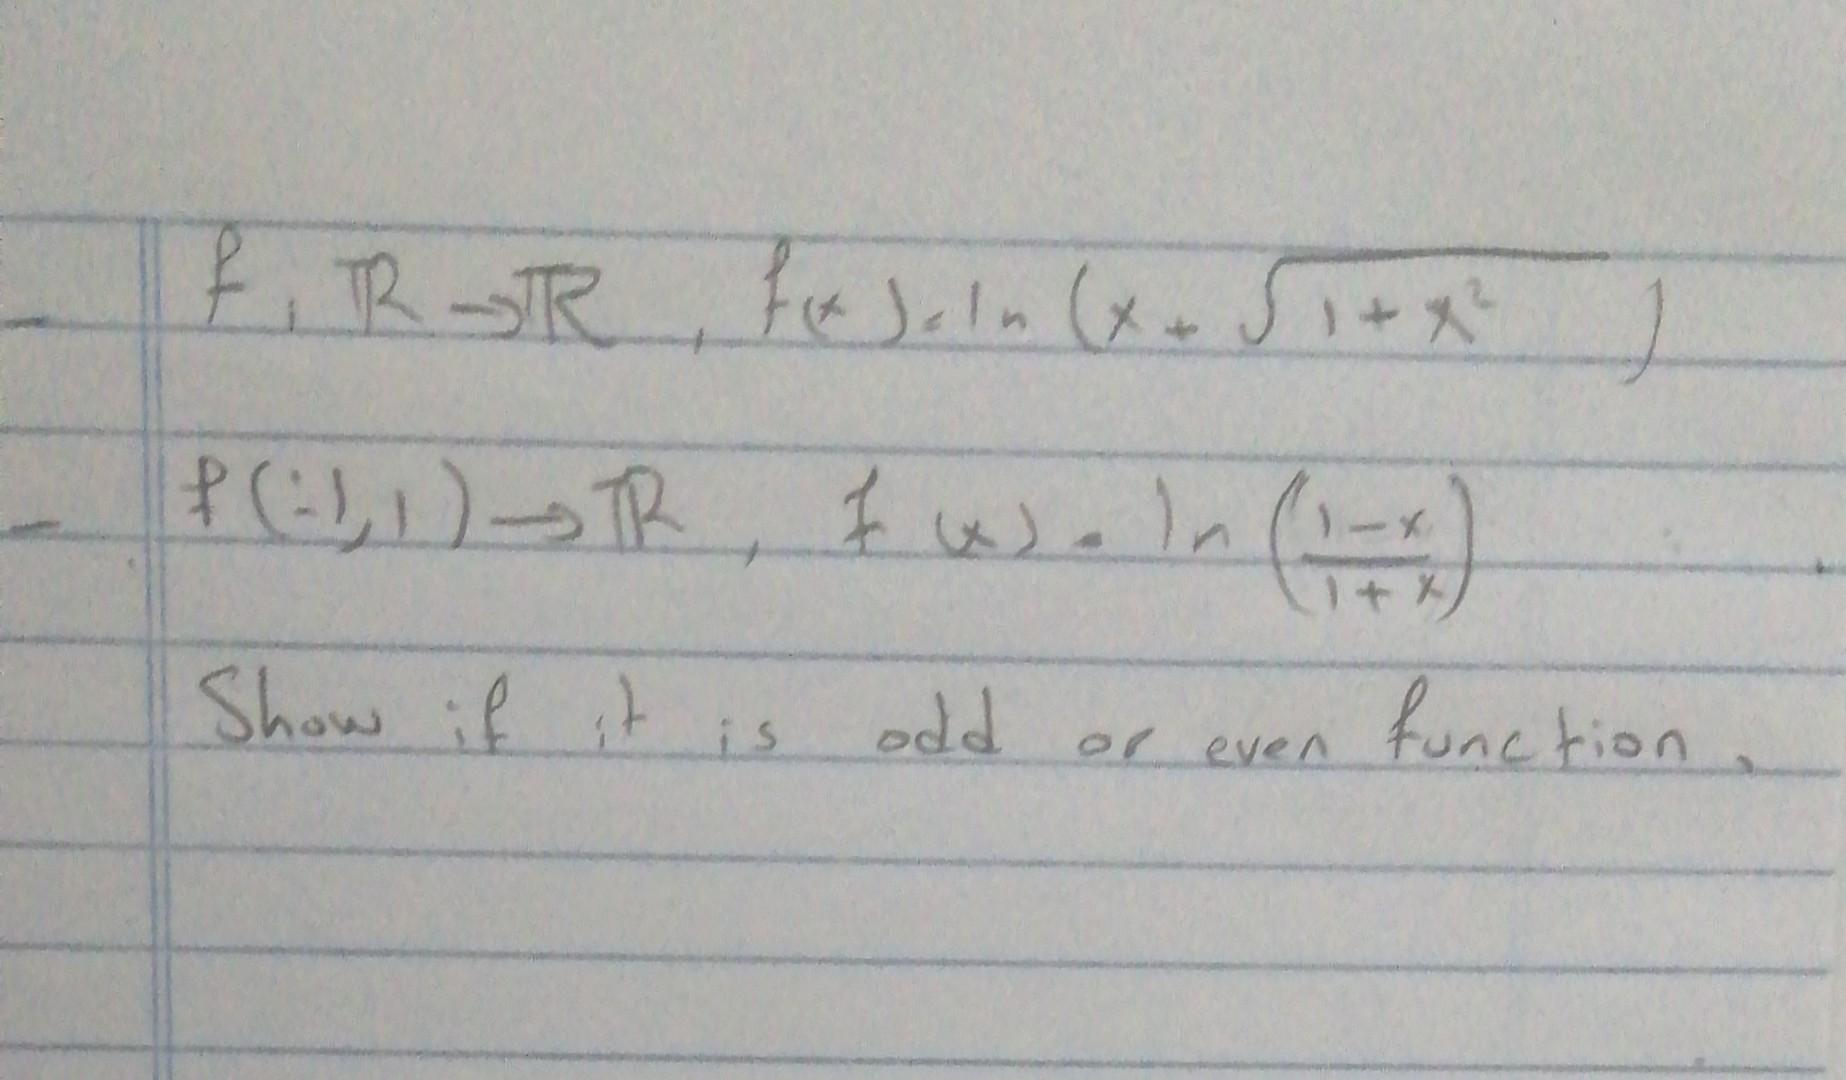 - f, ℝ → ℝ, f(x) = ln (x + √(1 + x²))
- f (-1, 1) → ℝ, f (x) = ln ((1-x)/(1+x))
Show if it is odd or even function.